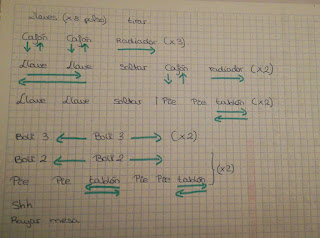 Llaves (x 8 pulso) tirar
Cajón Cajón Radiador (x3)
Llave Llave soltar Cajón radiador (x2)
Llave Llave soltar | Pie Pie tablón (x2)
Bols 3 Bols 3 (x2)
Bols 2 Bols 2
Pie Pie tablón Pie Pie tablón (x2)
Shh
Rayar mesa